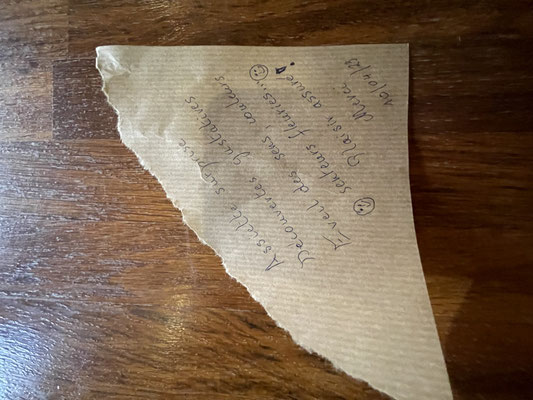 Assiette surprise
Découvertes gustatives
Eveil des sens, couleurs
senteurs fleuries,,, ☺
☺ Plaisir assuré !
Merci
10/04/23